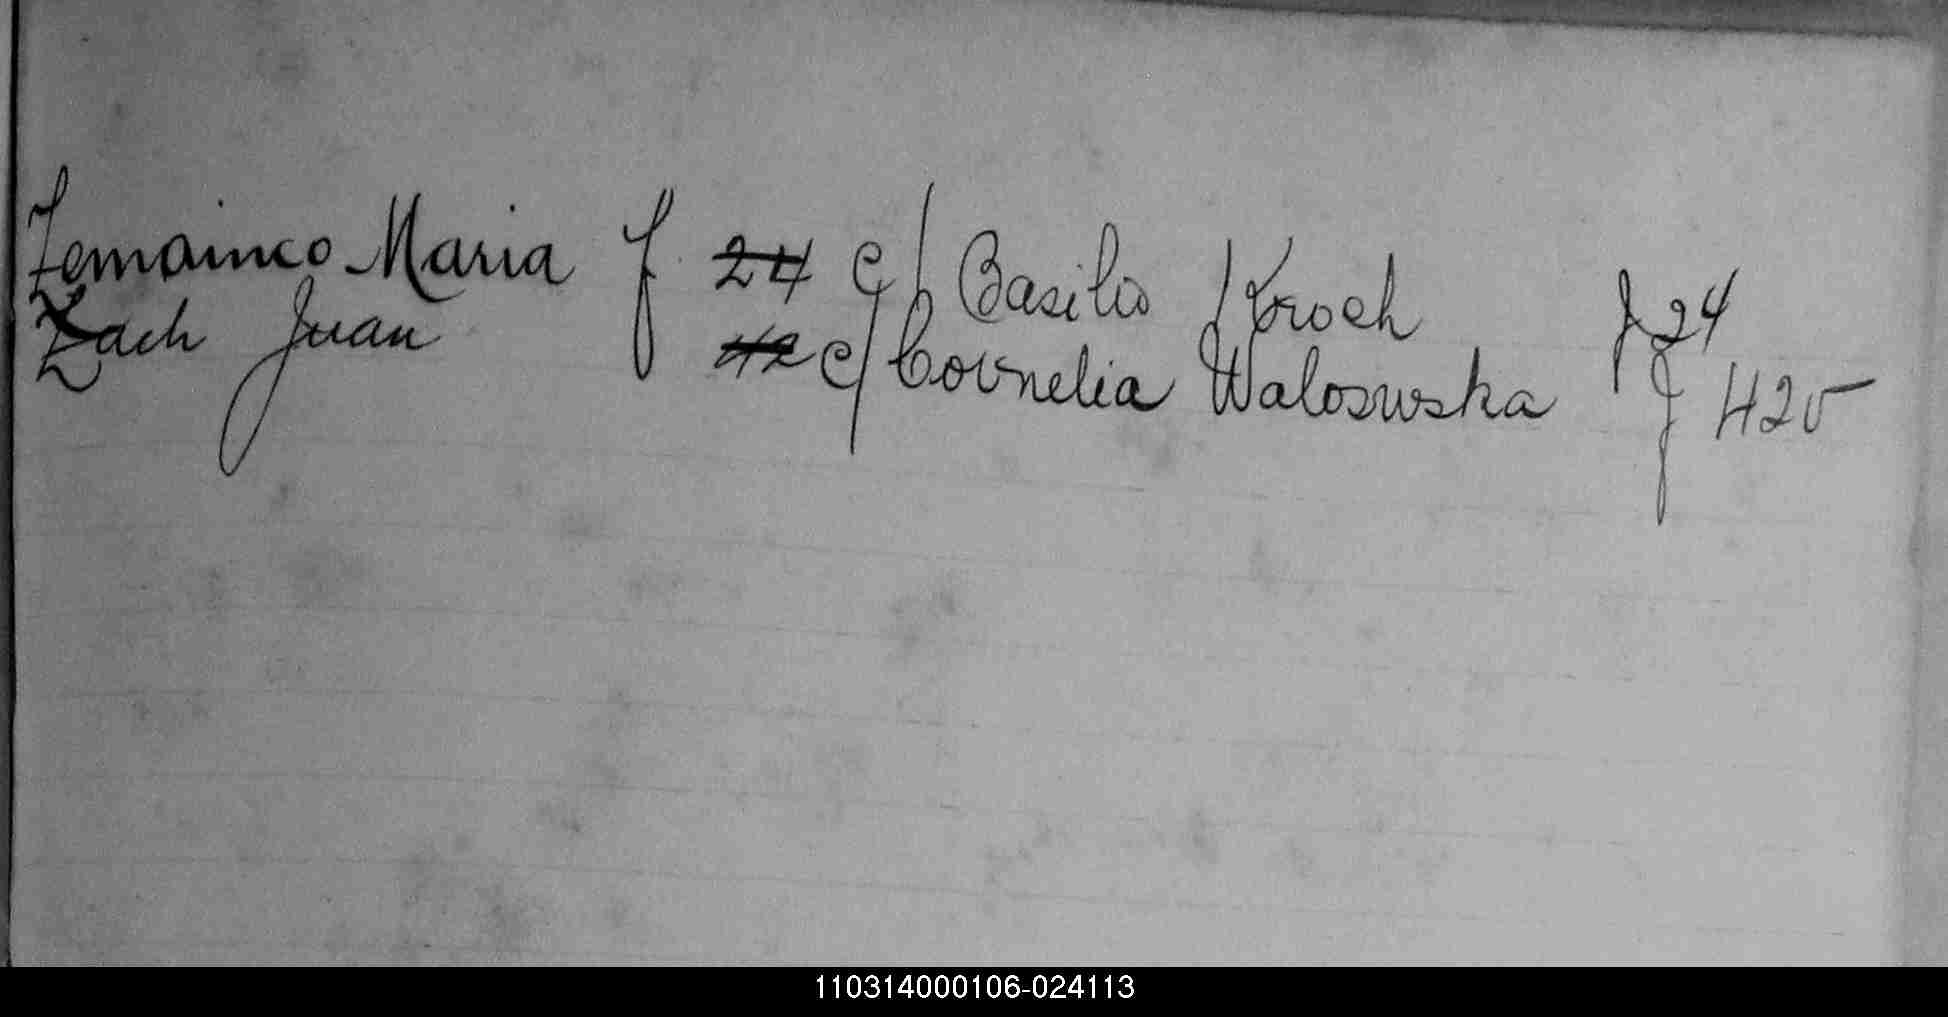 Zemainco Maria f 24 c/ Basilio Kroch f 24
Zach Juan 42 c/ Cornelia Walosuska f 42v
110314000106-024113